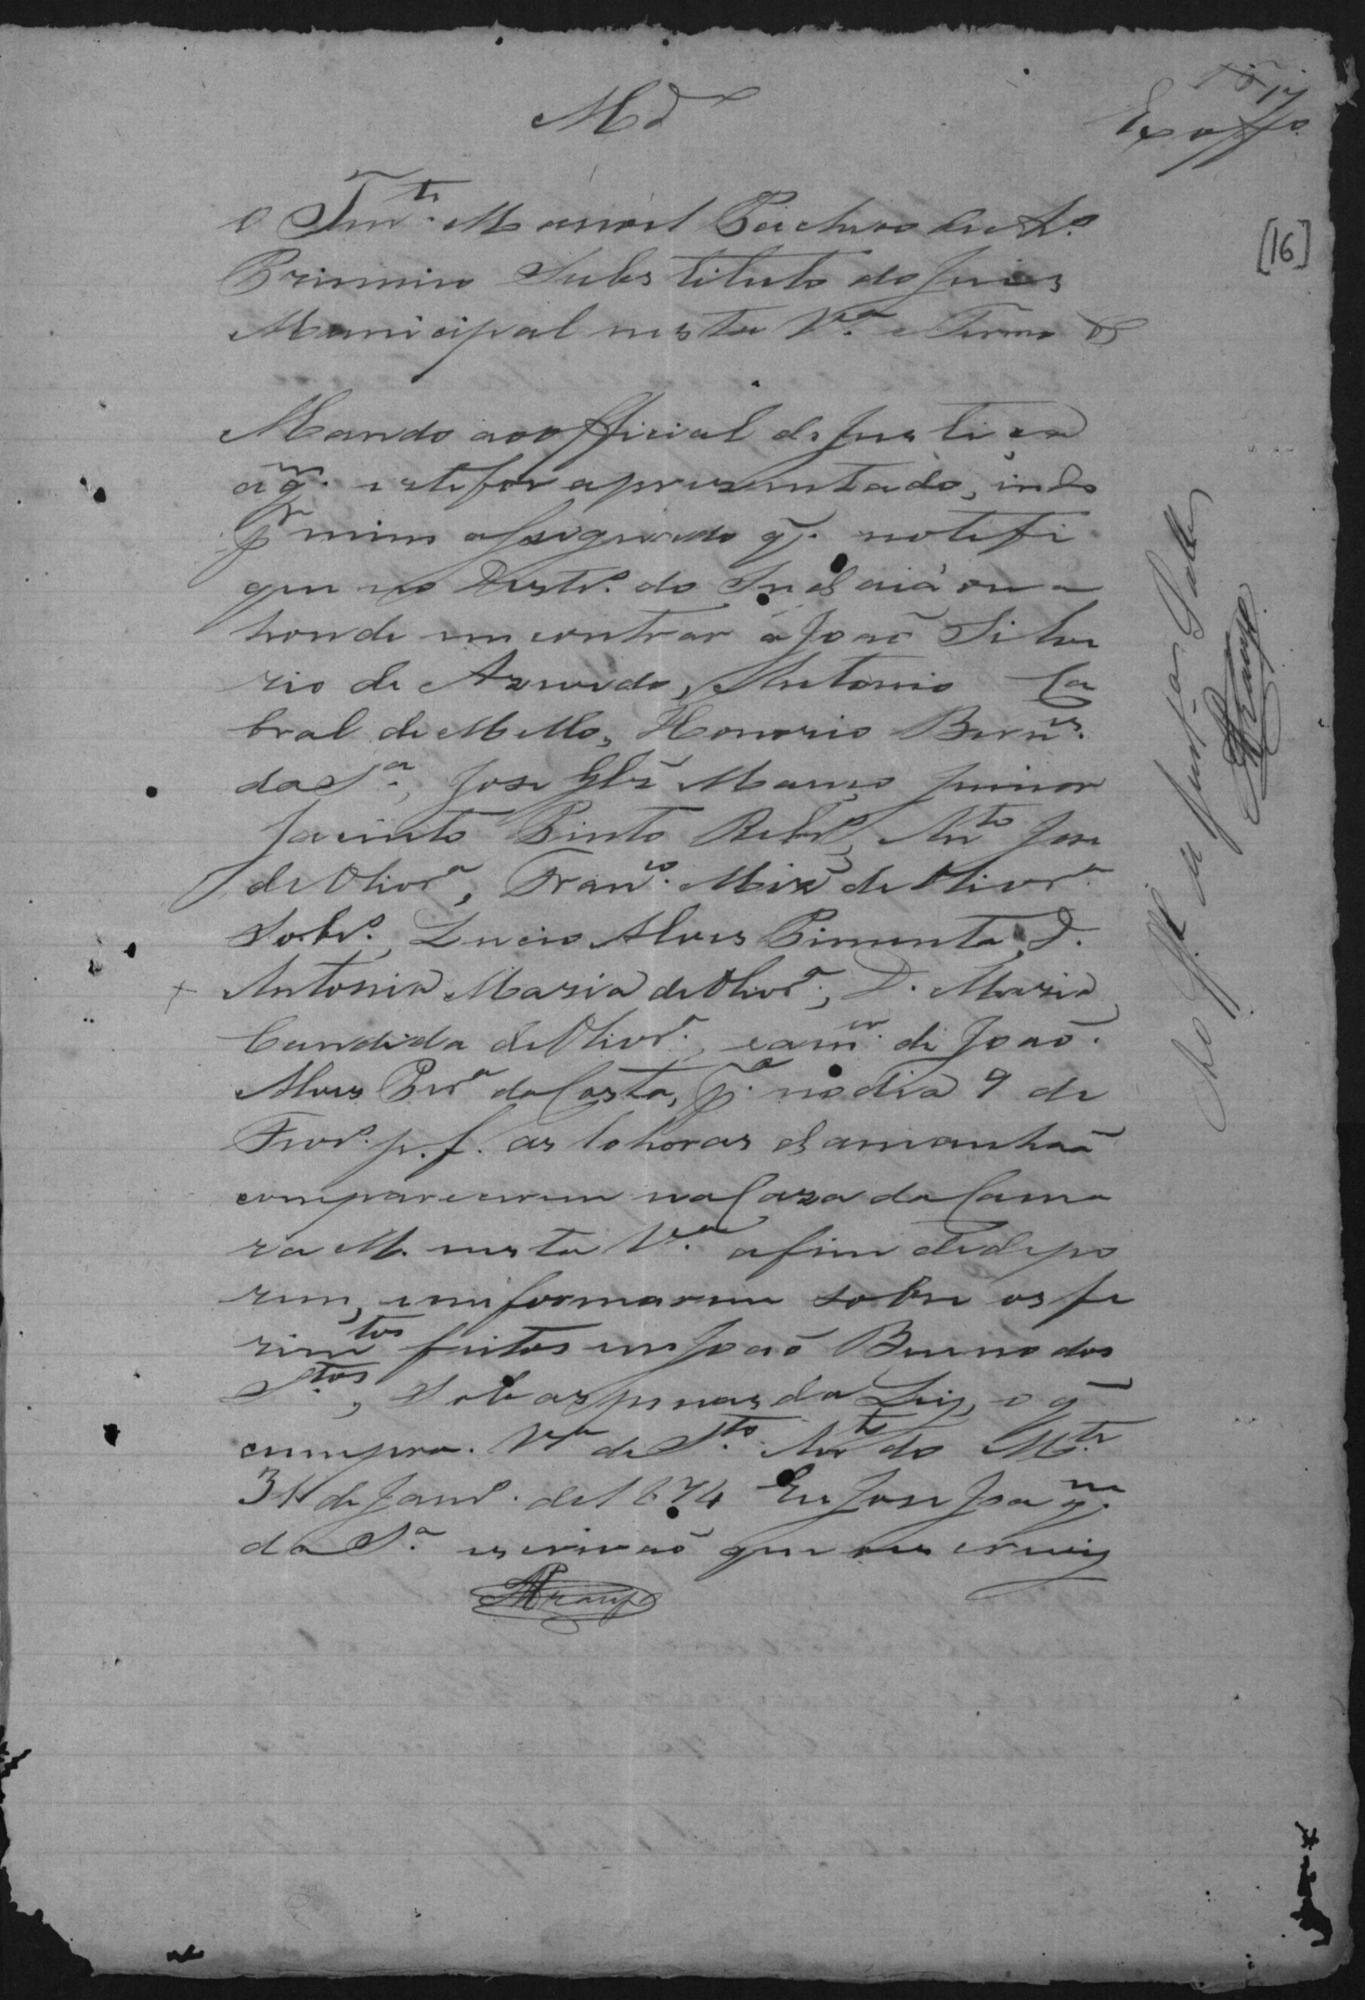 Md.º
Ex offo.
[16]
O Ten.te Manoel Pacheco de Ar.º
Primeiro Substituto do Juiz
Municipal nesta V.ª e Termo &
Mando ao official de Justiça
a q.m este for apresentado, indo
p.r mim assignado q. notifi
que no Destr.º do Indaiá ou a
honde encontrar a João Silve
rio de Azevedo, Antonio Ca
bral de Mello, Honorio Bern.es
da S.ª, Jose Glz Março Junior
Jacinto Pinto Rib.º, Ant.º Jose
de Olivr.ª, Fran.co Miz de Olivr.ª
Sobr.º, Lucio Alves Pimenta, D.
Antonia Maria de Olivr.ª, D. Maria
Candida de Olivr.ª, e a m.er de João
Alves Per.ª da Costa, p.ª no dia 9 de
Fevr.º p. f. as 10 horas da manhaã
comparecerem na Caza da Cama
ra M. nesta V.ª afim de depo
rem, e imformarem sobre os fe
rim.tos feitos em João Bueno dos
S.tos, Sob as penas da Lei, o q
cumpra. V.ª de S.to Ant.º do M.te
31 de Janr.º de 1874 Eu Jose Joaq.m
da S.ª escrivaõ que o escrevi
Araujo
Ao Off.l de Justiça Salles
Araujo